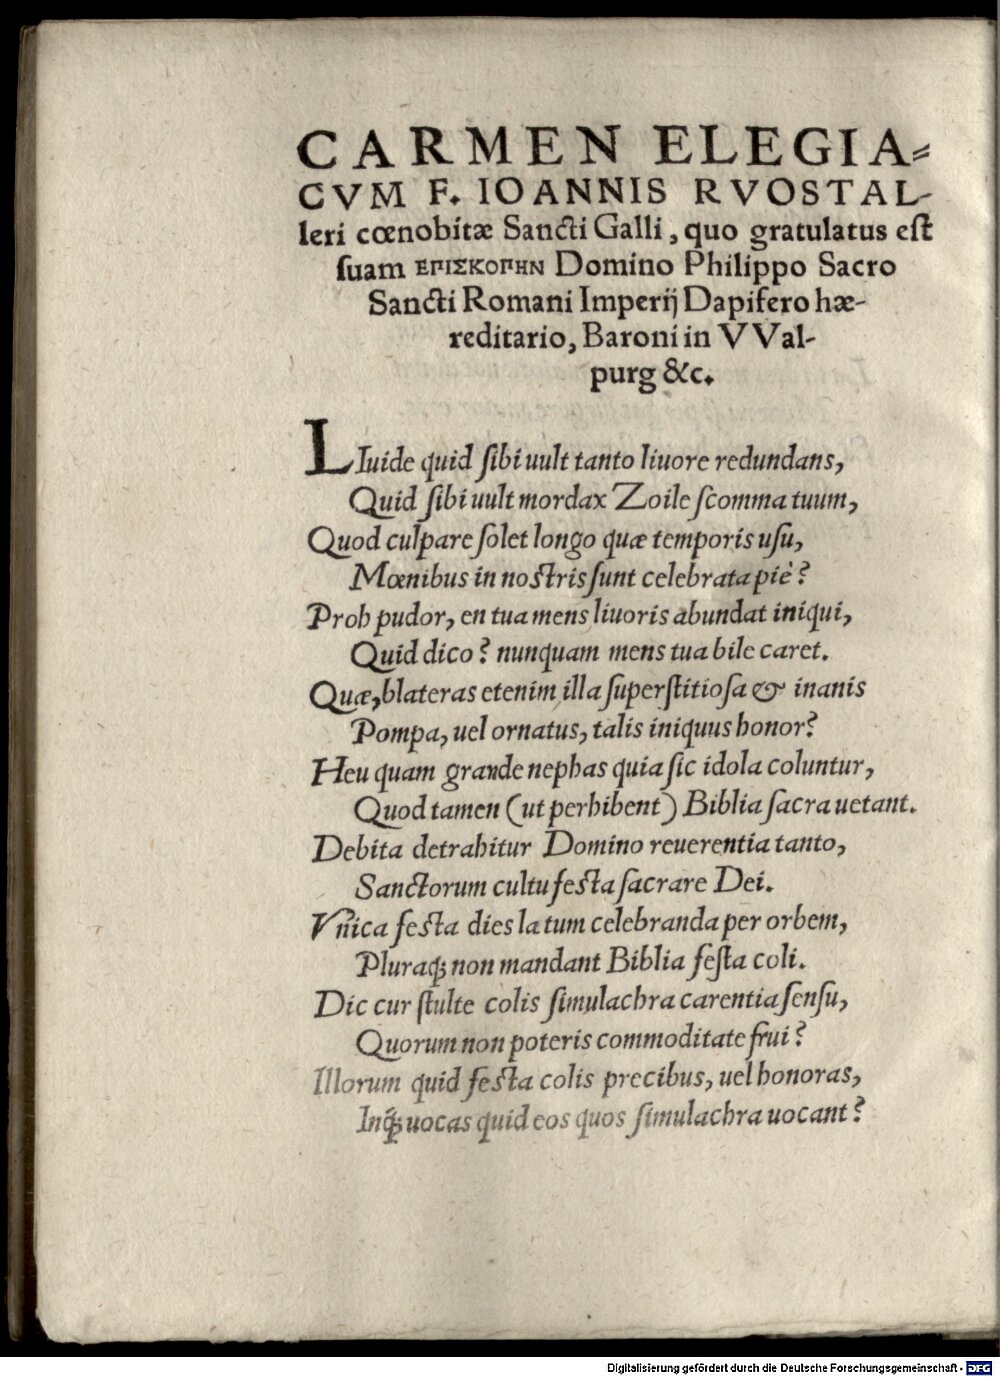 CARMEN ELEGIA-
CVM F. IOANNIS RVOSTAL-
leri cœnobitæ Sancti Galli, quo gratulatus est
suam ΕΠΙΣΚΟΠΗΝ Domino Philippo Sacro
Sancti Romani Imperij Dapifero hæ-
reditario, Baroni in VVal-
purg &c.
LIuide quid sibi uult tanto liuore redundans,
Quid sibi uult mordax Zoile scomma tuum,
Quod culpare solet longo quæ temporis usu,
Mœnibus in nostris sunt celebrata piè?
Proh pudor, en tua mens liuoris abundat iniqui,
Quid dico? nunquam mens tua bile caret.
Quæ, blateras etenim illa superstitiosa & inanis
Pompa, uel ornatus, talis iniquus honor?
Heu quam grande nephas quia sic idola coluntur,
Quod tamen (ut perhibent) Biblia sacra uetant.
Debita detrahitur Domino reuerentia tanto,
Sanctorum cultu festa sacrare Dei.
Vñica festa dies latum celebranda per orbem,
Pluraq; non mandant Biblia festa coli.
Dic cur stulte colis simulachra carentia sensu,
Quorum non poteris commoditate frui?
Illorum quid festa colis precibus, uel honoras,
Inq; uocas quid eos quos simulachra uocant?
Digitalisierung gefördert durch die Deutsche Forschungsgemeinschaft - DFG